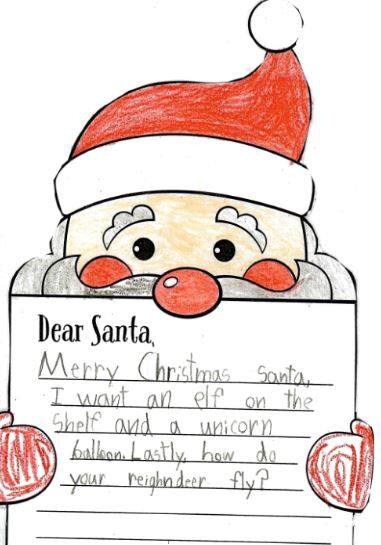 Dear Santa,
Merry Christmas santa,
I want an elf on the
shelf and a unicorn
balloon. Lastly, how do
your reighndeer fly?